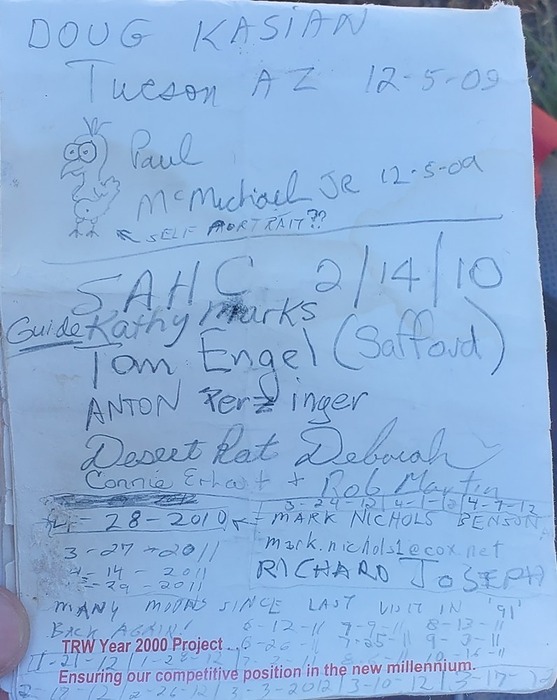 DOUG KASIAN
Tucson AZ 12-5-09
Paul
McMichael JR 12-5-09
SELF PORTRAIT??
SAHC 2/14/10
Guide Kathy Marks
Tom Engel (Safford)
ANTON Perzinger
Desert Rat Deborah
Connie Erhart + Rob Martin
3-24-12 4-1-12 4-7-12
28-2010 MARK NICHOLS BENSON
3-27-2011 mark.nichols1@cox.net
4-14-2011 RICHARD JOSEPH
29-2011
MANY MOONS SINCE LAST VISIT IN '91
BACK AGAIN! 6-12-11 7-9-11 8-13-11
TRW Year 2000 Project... 6-26-11 7-25-11 9-3-11
Ensuring our competitive position in the new millennium.
2-26-12 3-3-2012 3-10-12 3-17-12